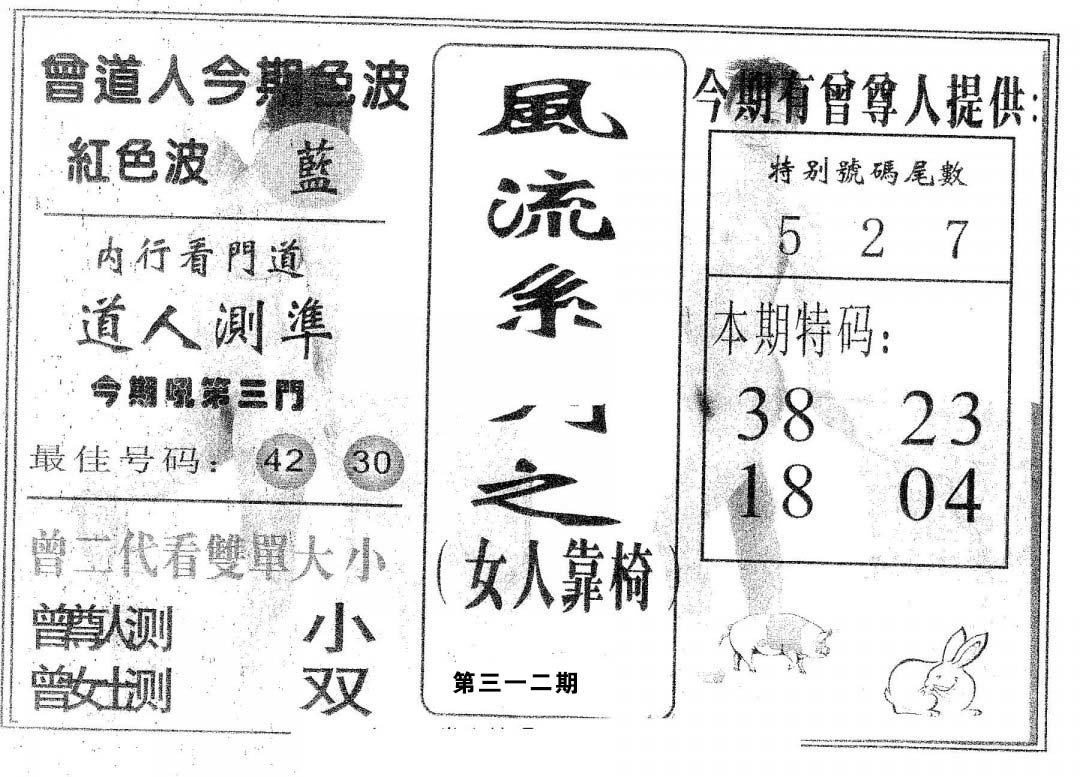 曾道人今期色波
紅色波 藍
内行看門道
道人測準
今期吼第三門
最佳号码：42 30
曾二代看雙單大小
曾尊人测 小
曾女士测 双
風流系
之
（女人靠椅）
第三一二期
今期有曾尊人提供：
特别號碼尾數
5 2 7
本期特码：
38 23
18 04